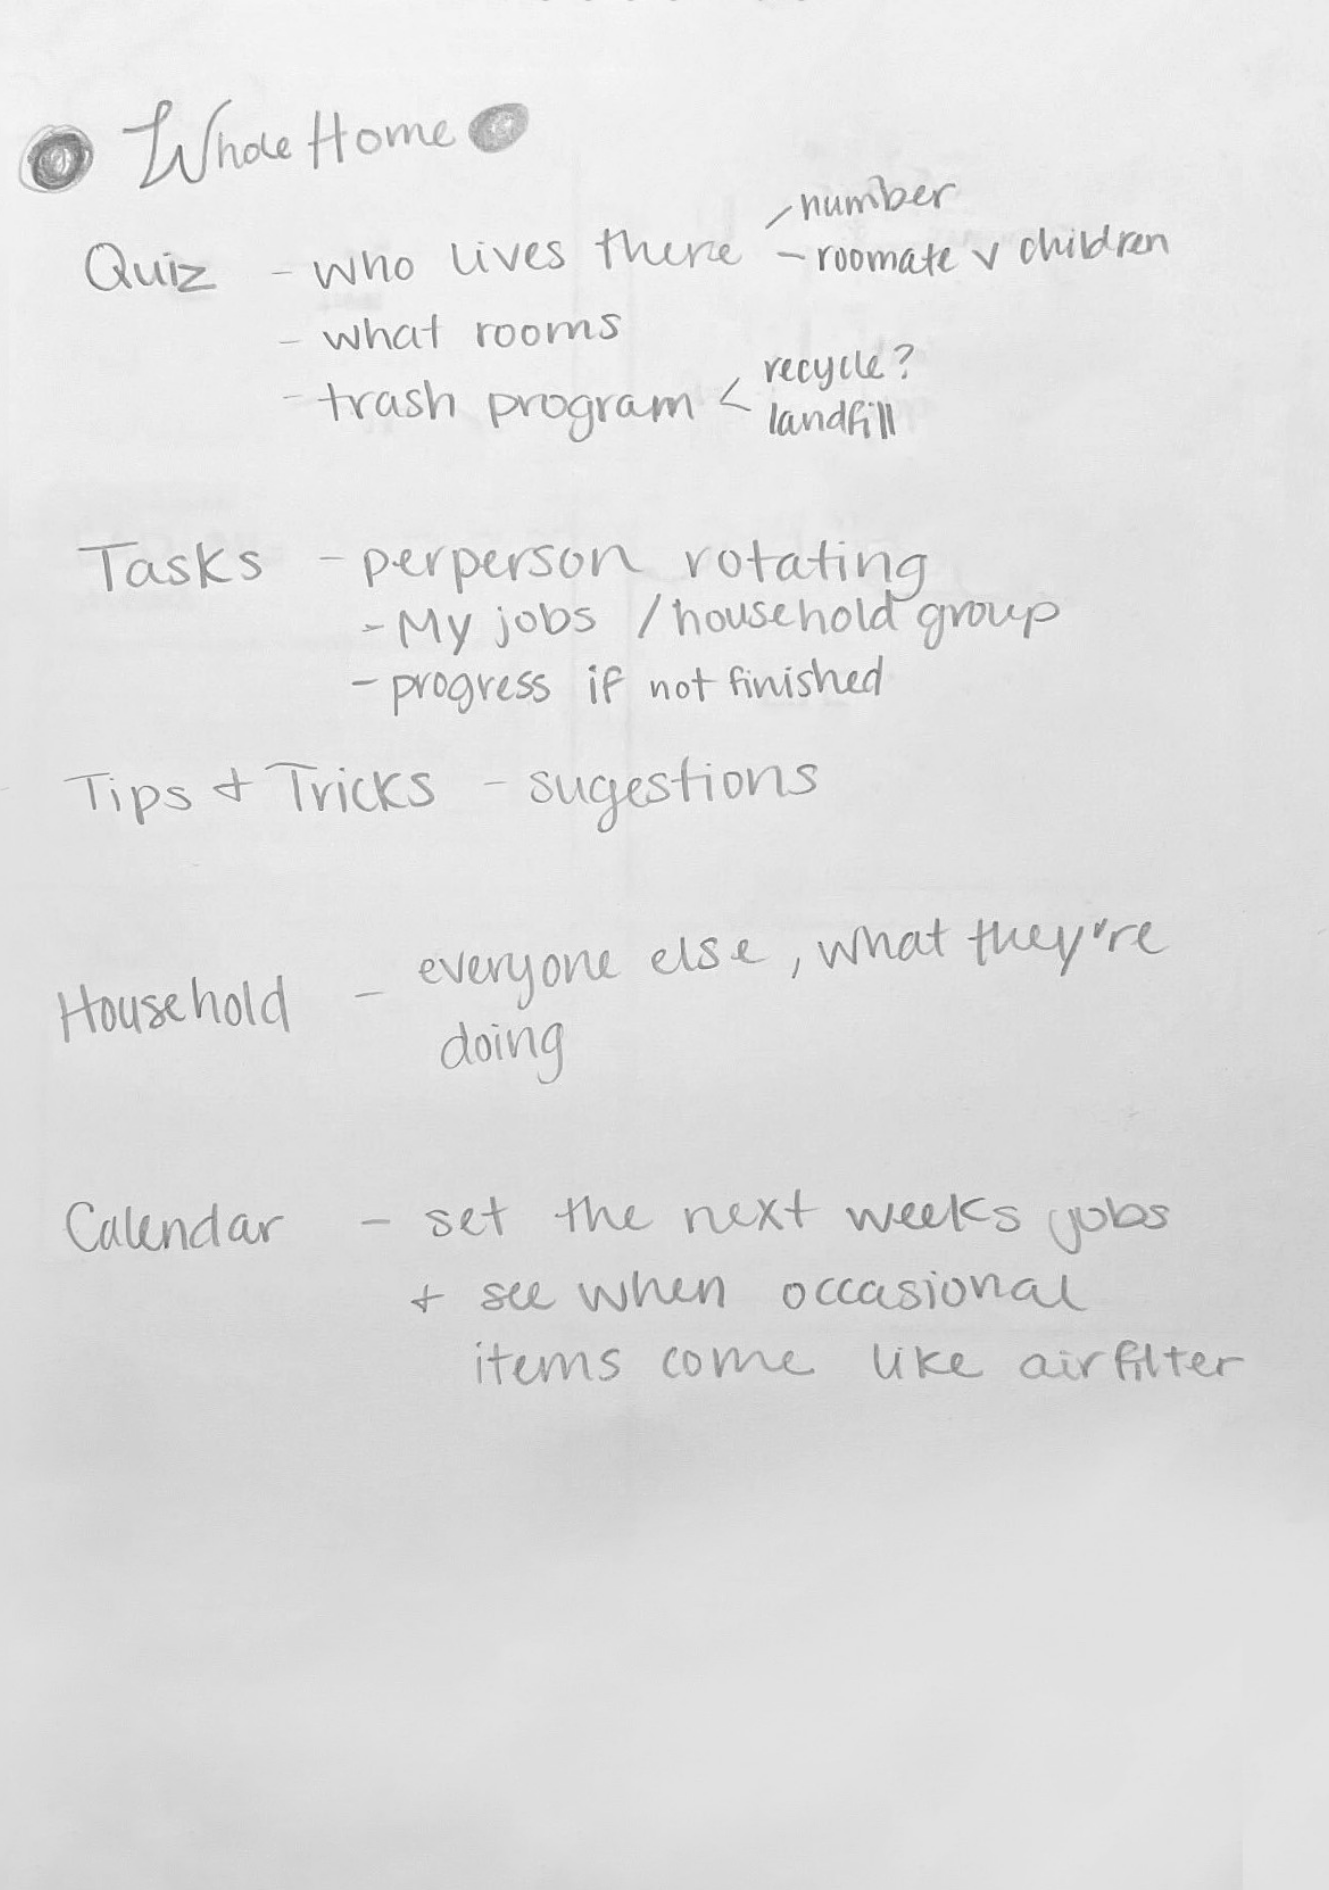 Whole Home
Quiz - who lives there / number
- roomate v children
- what rooms
- trash program < recycle?
landfill
Tasks - perperson rotating
- My jobs / household group
- progress if not finished
Tips + Tricks - sugestions
Household - everyone else, what they're
doing
Calendar - set the next weeks jobs
+ see when occasional
items come like airfilter